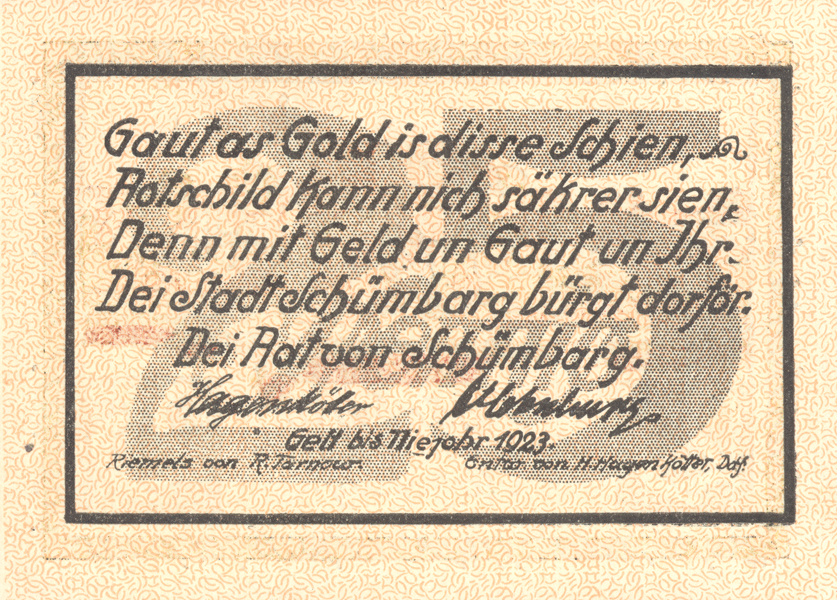 Gaut as Gold is disse Schien,
Rotschild kann nich säkrer sien,
Denn mit Geld un Gaut un Ihr.
Dei Stadt Schümbarg bürgt dorför.
Dei Rat von Schümbarg.
Hagenkötter
Geld bis Niejohr 1923.
Riemels von R. Tarnow.
Entw. von H. Hagenkötter, Ddf.
25